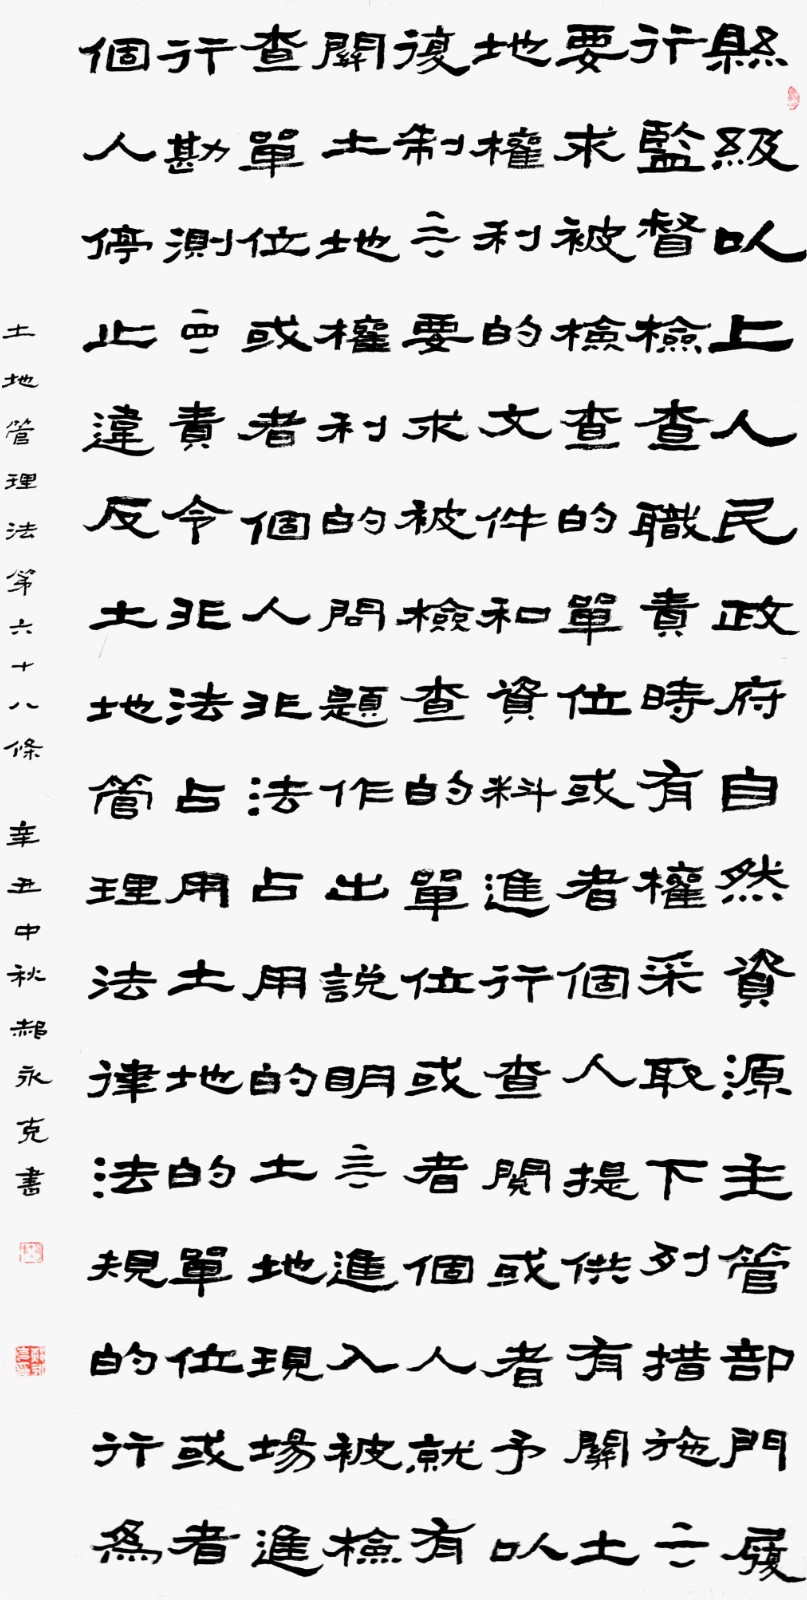 縣級以上人民政府自然資源主管部門履
行監督檢查職責時有權采取下列措施一
要求被檢查的單位或者個人提供有關土
地權利的文件和資料進行查閱或者予以
復制二要求被檢查的單位或者個人就有
關土地權利的問題作出説明三進入被檢
查單位或者個人非法占用的土地現場進
行勘測四責令非法占用土地的單位或者
個人停止違反土地管理法律法規的行爲
土地管理法第六十八條 辛丑中秋郝永克書